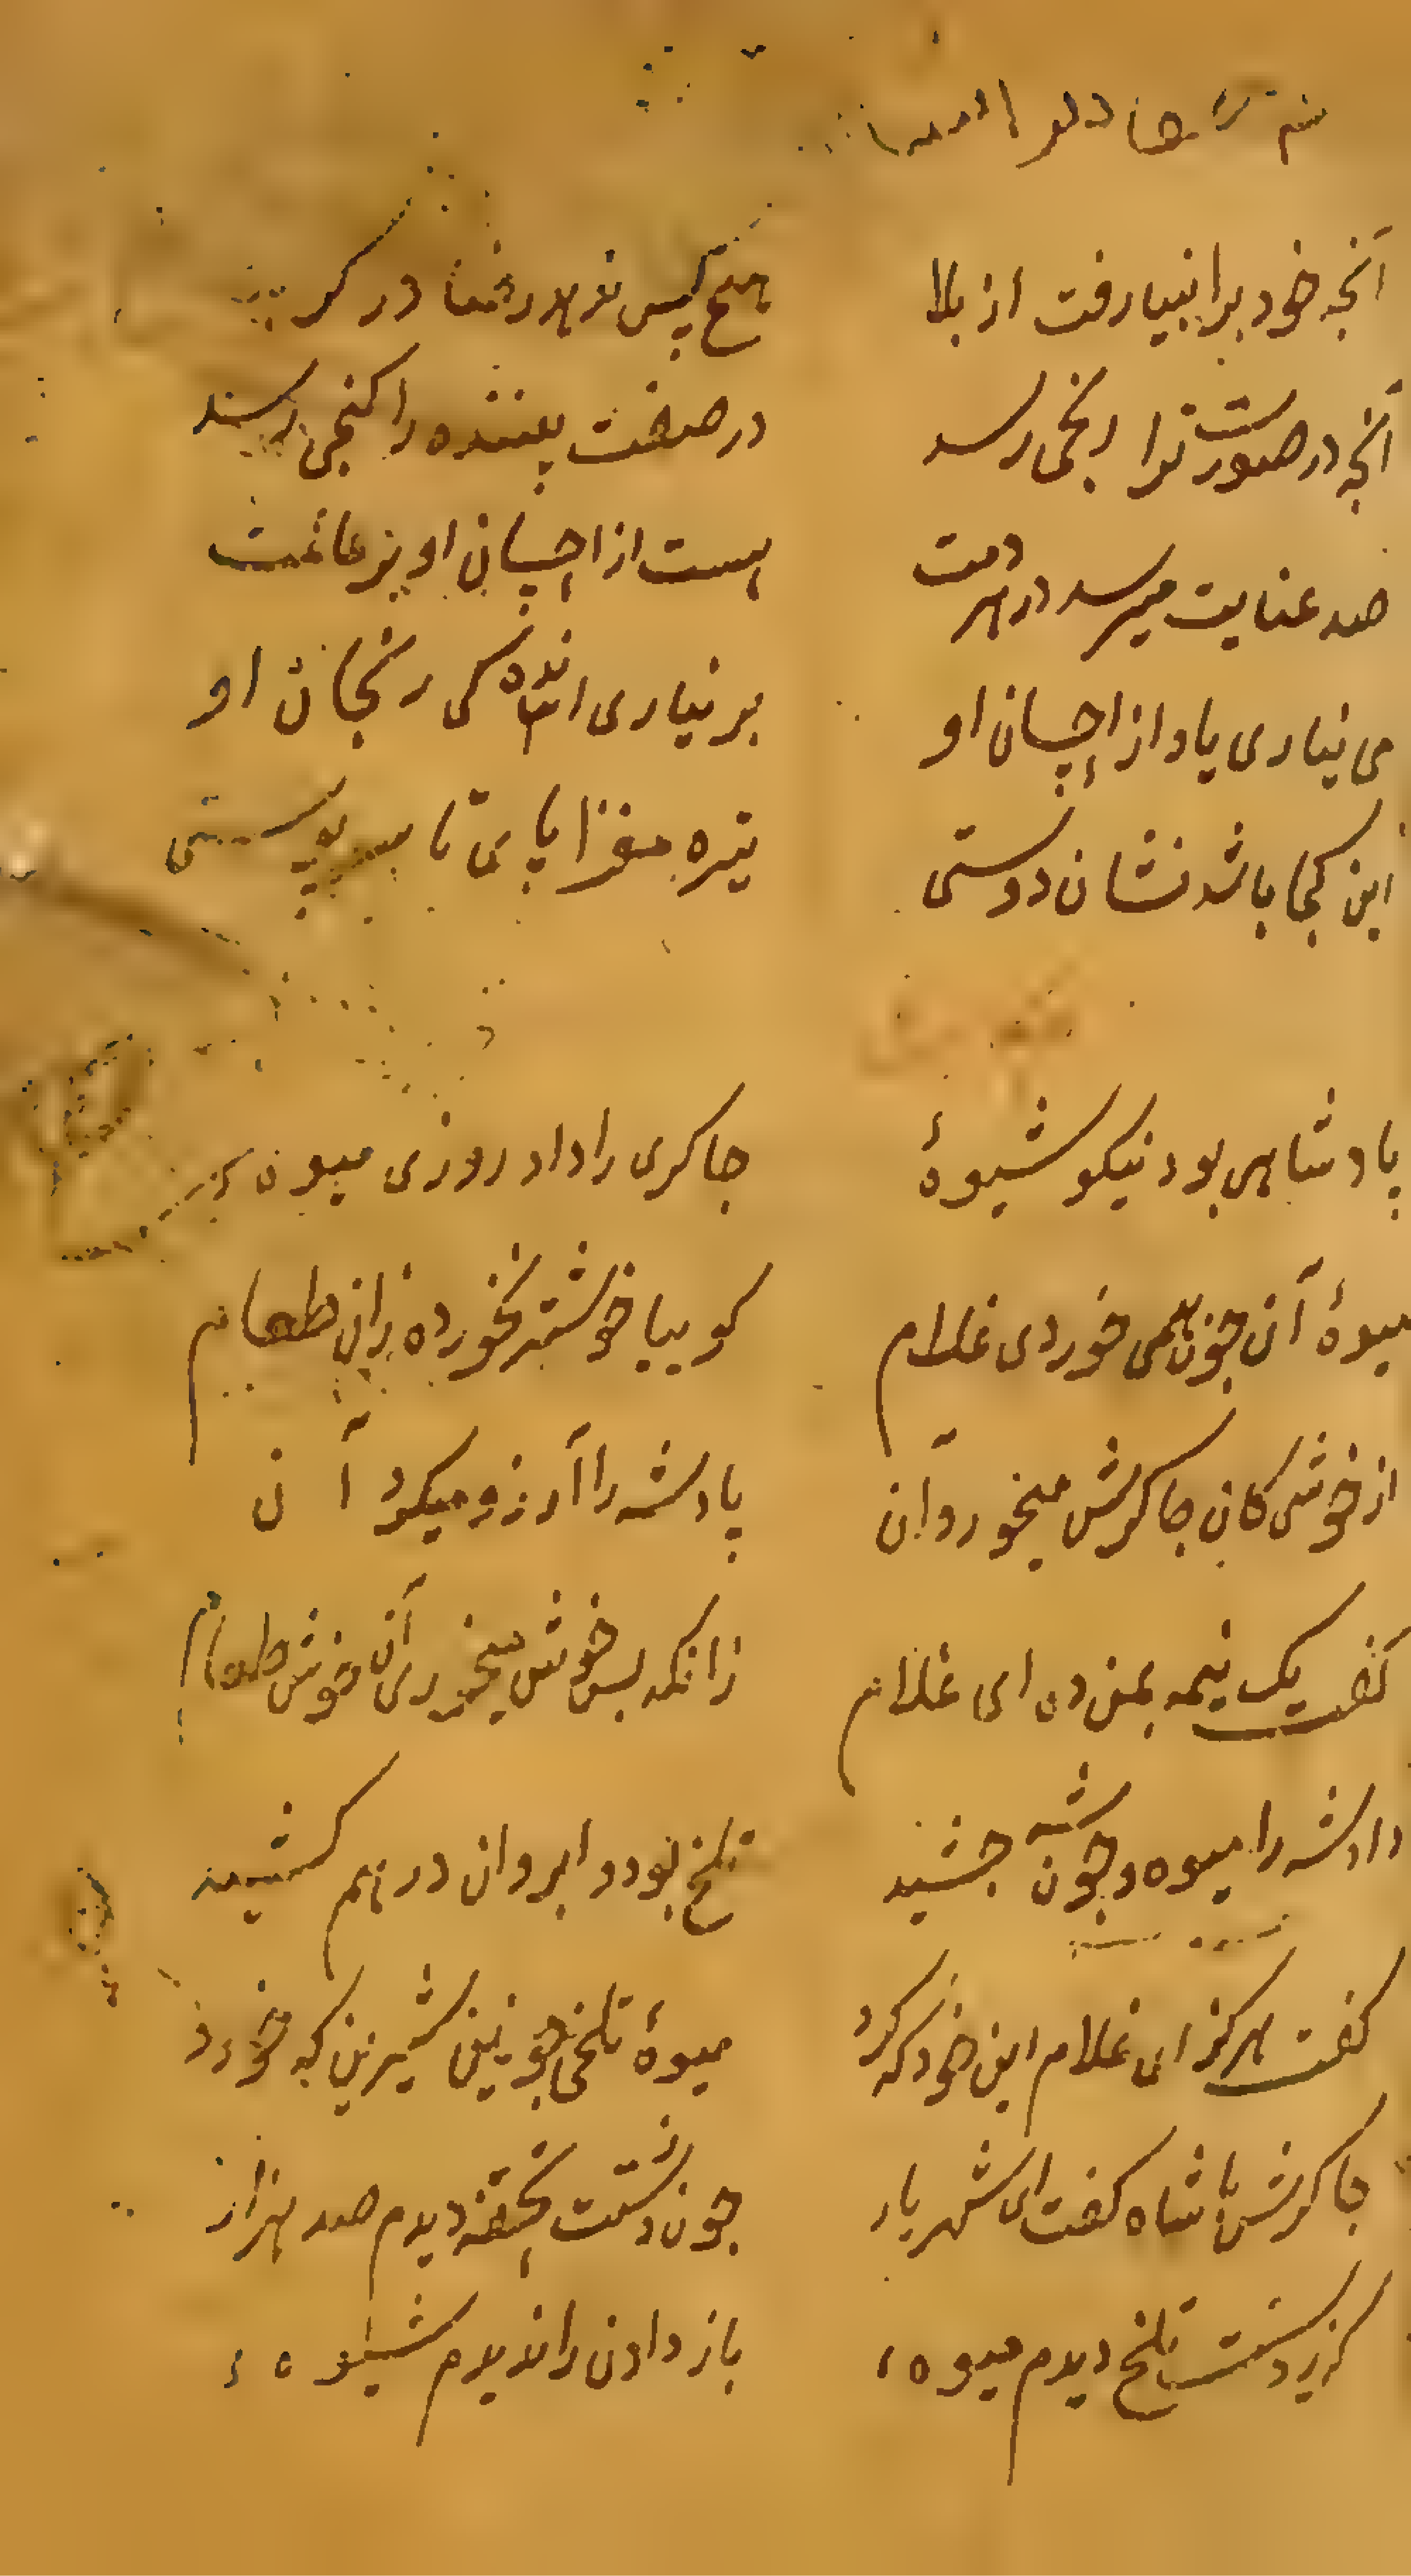 آنچه خود برانبیا رفت از بلا
هیچ کس ندهد نشان در کر
آنجه در صورت ترا رنجی رسد
در صفت بیننده را کنجی رسد
صد عنایت میرسد در هر دمت
هست از احسان او بر عالمت
می نیاری یاد از احسان او
برنیاری اندکی رنجان او
این کجا باشد نشان دوستی
تیره مغزا پای تا سر پوستی
پادشاهی بود نیکو شیوهٔ
جاکری را داد روزی میوهٔ
میوهٔ آن جون همی خوردی غلام
کوییا خوشتر نخورده زان طعام
از خوشی کان جاکرش میخورد آن
پادشه را آرزو میکرد آن
کفت یک نیمه بمن ده ای غلام
زانکه بس خوش میخوری آن خوش طعام
داد شه را میوه و جون شه جشید
تلخ بود و ابروان درهم کشید
کفت هرکز ای غلام این خود که کرد
میوهٔ تلخی جونین شیرین که خورد
جاکرش با شاه کفت ای شهریار
جون ز دستت تحفه دیدم صد هزار
کر ز دستت تلخ دیدم میوهٔ
باز دادن را ندیدم شیوهٔ